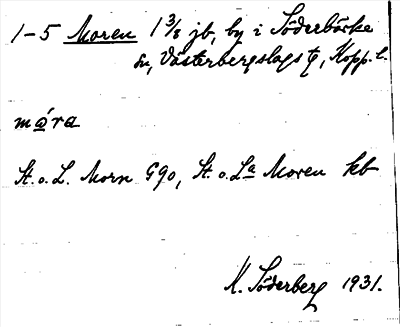 1-5 Moren 1 3/8 jb, by i Söderbärke
sn, Västerbergslags tg, Kopp. l.
måra
St. o. L. Morn G90, St. o. La Moren kb
K. Söderberg 1931.